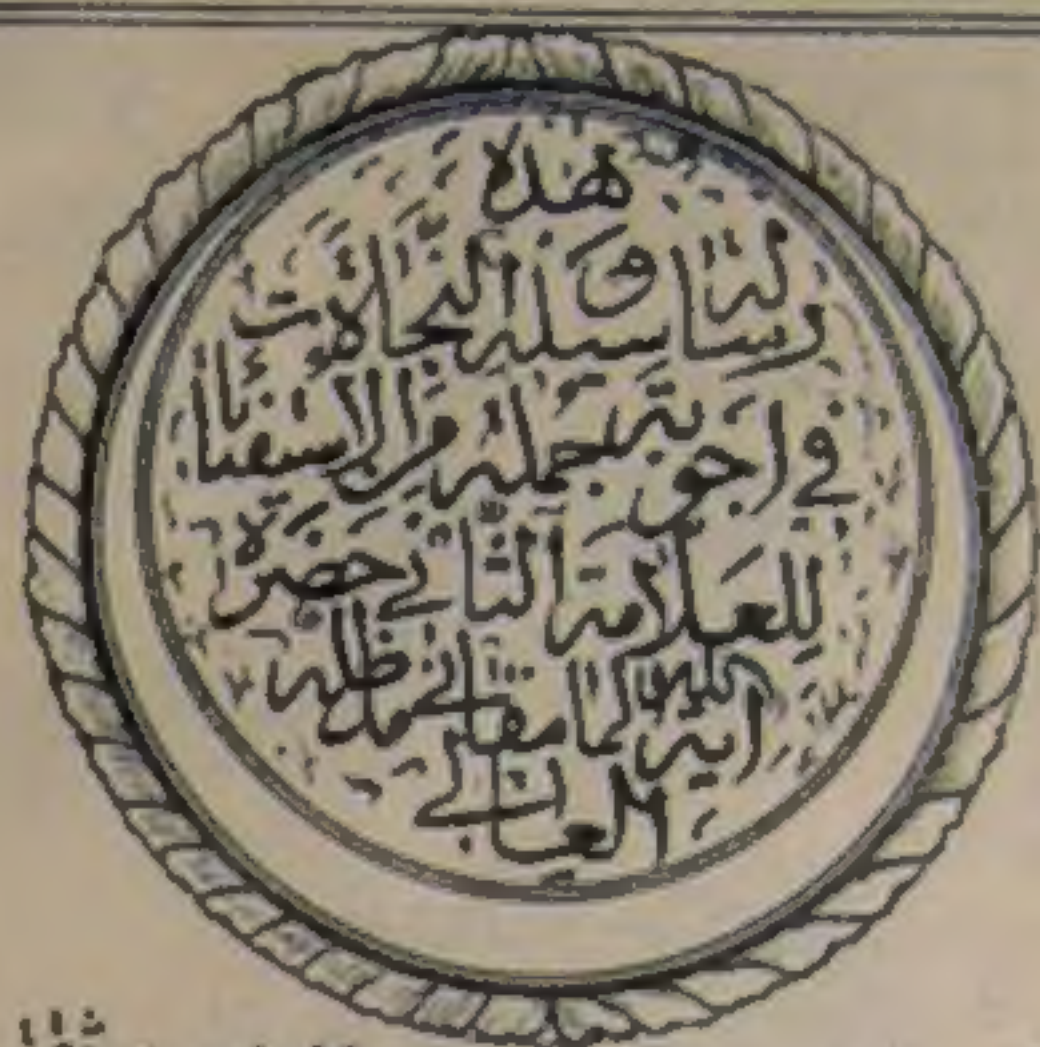 هذه
رسالة وسيلة النجاة
في اجوبة جملة من الاستفتاآت
للعلامة الثاني حضرة
اية الله المامقاني مد ظله
العالي